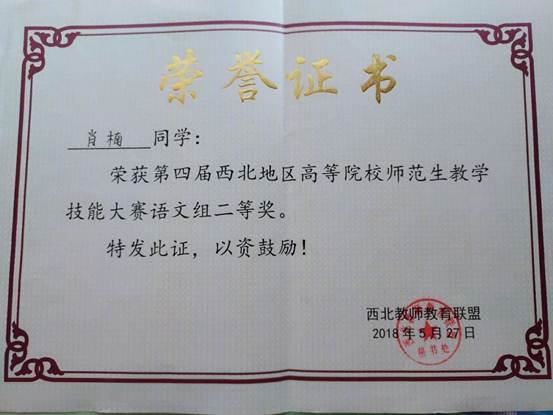 荣誉证书
肖楠 同学：
荣获第四届西北地区高等院校师范生教学
技能大赛语文组二等奖。
特发此证，以资鼓励！
西北教师教育联盟
2018年5月27日
秘书处